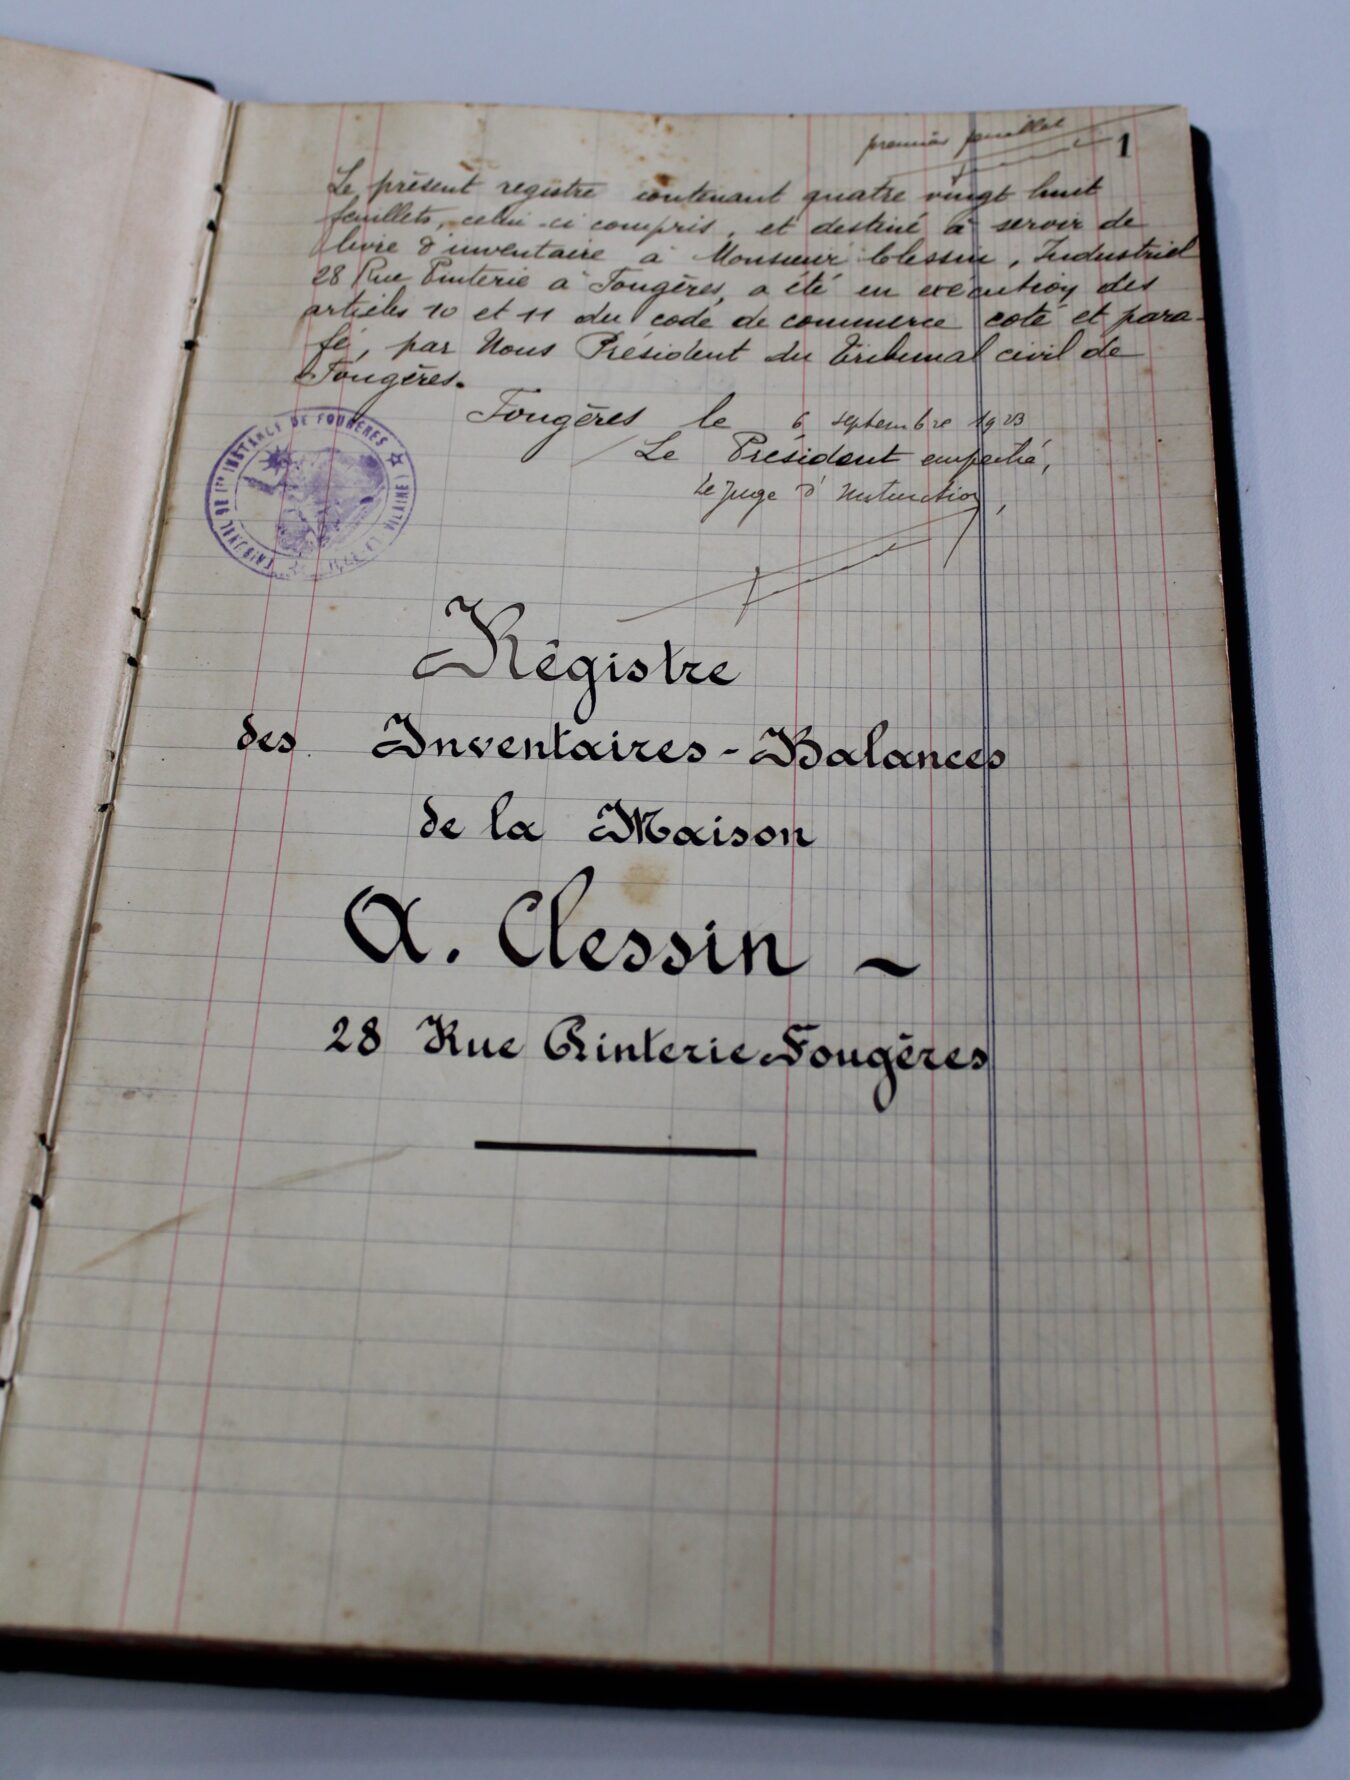 premier feuillet
1
Le présent registre contenant quatre vingt huit
feuillets, celui-ci compris, et destiné à servir de
livre d'inventaire à Monsieur Clessin, Industriel
28 Rue Pinterie à Fougères, a été en exécution des
articles 10 et 11 du code de commerce coté et para-
fé, par Nous Président du Tribunal civil de
Fougères.
Fougères le 6 septembre 1923
Le Président empêché,
Le juge d'instruction,
TRIBUNAL DE 1re INSTANCE DE FOUGERES ☆ ET VILAINE
Régistre
des Inventaires-Balances
de la Maison
A. Clessin ~
28 Rue Pinterie Fougères